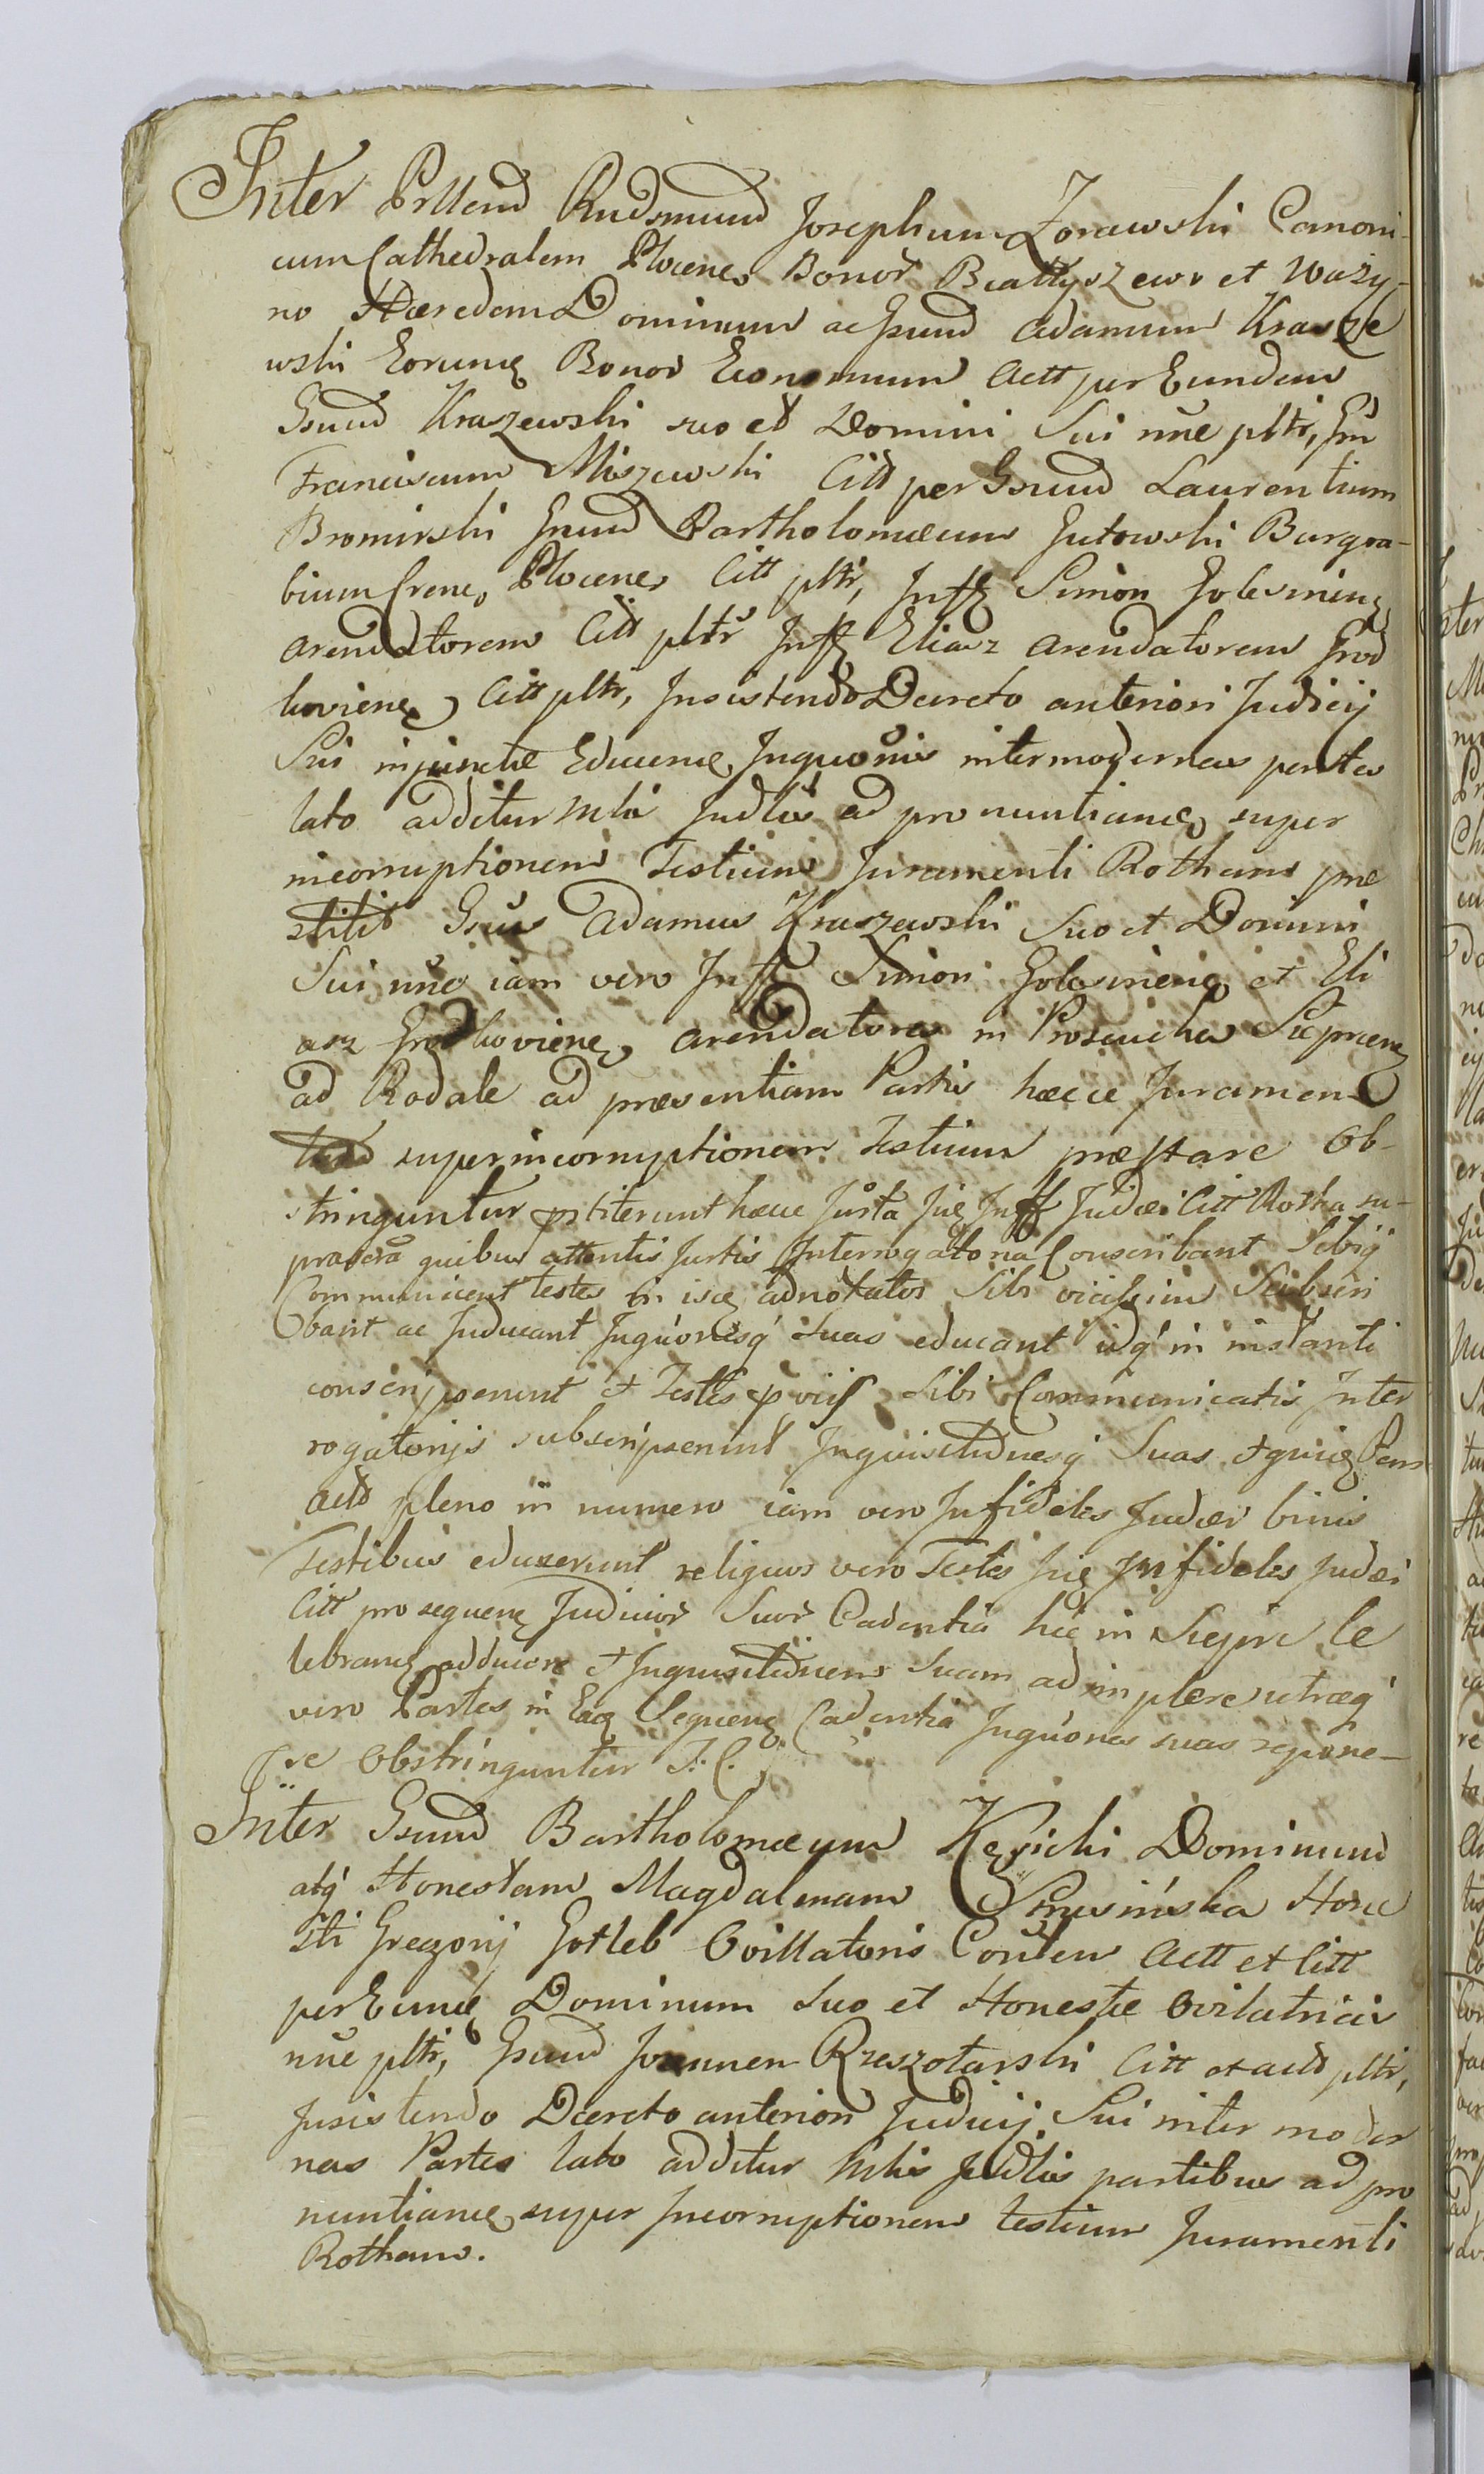 Inter Prllend Rndsmum Josephum Zorawski Canoni-
cum Cathedralem Plocenes Bonor Bcattyszewo et Wazy-
no Hæredem Dominum ac Gsum Adamum Krasze
wski Eorumq Bonor Economum Actt per Eundem
Gsum Kraszewski suo et Domini Sui nne pltr, Gm
Franciscum Miszewski Citt per Gsum Laurentium
Bromirski Gnum Bartholomæum Gutowski Burgra-
bium Crenes Plocenes Citt pltr, Inff Simon Golesmineng
Arendatorem Citt pltr Inff Eliasz Arendatorem Grod
koviene, Citt pltr, Insistendo Decreto anteriori Judicij
Sui injunctæ Educenæ Inquonis inter modernas partes
lato additur Mli Judlis ad pronuntianæ super
incorruptionem Testium Juramenti Rotham præ
stitit Gsus Adamus Kraszewski Suo et Domini
Sui nne iam vero Inff Simon Golesmieng et Eli
asz Grodkoviene, Arendatores in Proseucha Sieprceneg
ad Rodale ad præsentiam Partis hæcce Juramen
super incorruptionem Testium præstare Ob-
stringuntur pstiterunt hæcce Jurta Juq Inff Judæi Citt Rotha su-
prascra quibus attentis Jurtis Interrogatoria Conscribant Sibiq
Communicent testes in isq adnotatos Sibi vicissim Subscri
bant ac Inducant Inquonesq suas educant idq in instanti
conscripserunt et Testes p vicis Sibi Communicatis Inter
rogatorijs subscripserunt Inquisitionesq Suas
Actt pleno in numero iam vero Infideles Judæi binis
Testibus eduxerunt reliquos vero Testes Juq Infideles Judæi
Citt pro sequenq Judicior Suor Cadentia hic in Sieprc Ce
lebranq adducere et Inquisitionem Suam adimplere utræq
vero Partes in Eaq Sequenq Cadentia Inquones suas repone-
re Obstringuntur J: C:
Inter Gsum Bartholomæum Kęsicki Dominum
atq Honestam Magdalenam Hone
sti Gregorij Gotleb Ovillatoris Contem Actt et Citt
per Eumq Dominum Suo et Honestæ Ovilatricis
nne pltr, Gsum Joannem Rzeszotarski Citt et act pltr,
Insistendo Decreto anteriori Judicij Sui inter moder
nas Partes lato additur Mlis Judlis partibus ad pro
nuntianq super Incorruptionem testium Juramenti
Rotham.